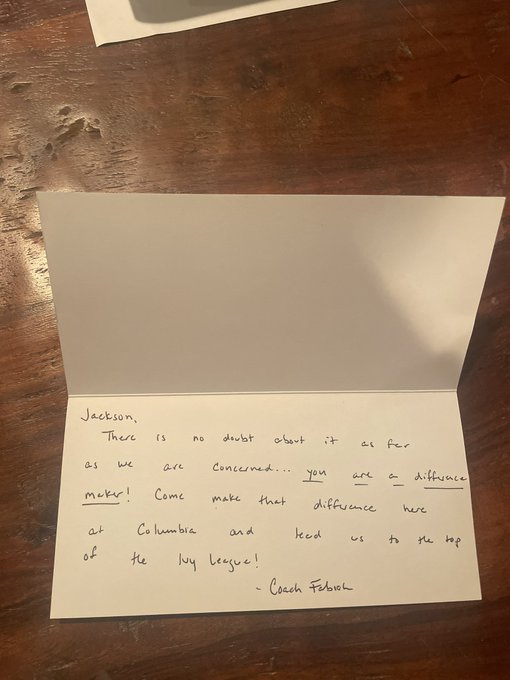 Jackson,
There is no doubt about it as far
as we are concerned... you are a difference
maker! Come make that difference here
at Columbia and lead us to the top
of the Ivy League!
- Coach Fabish